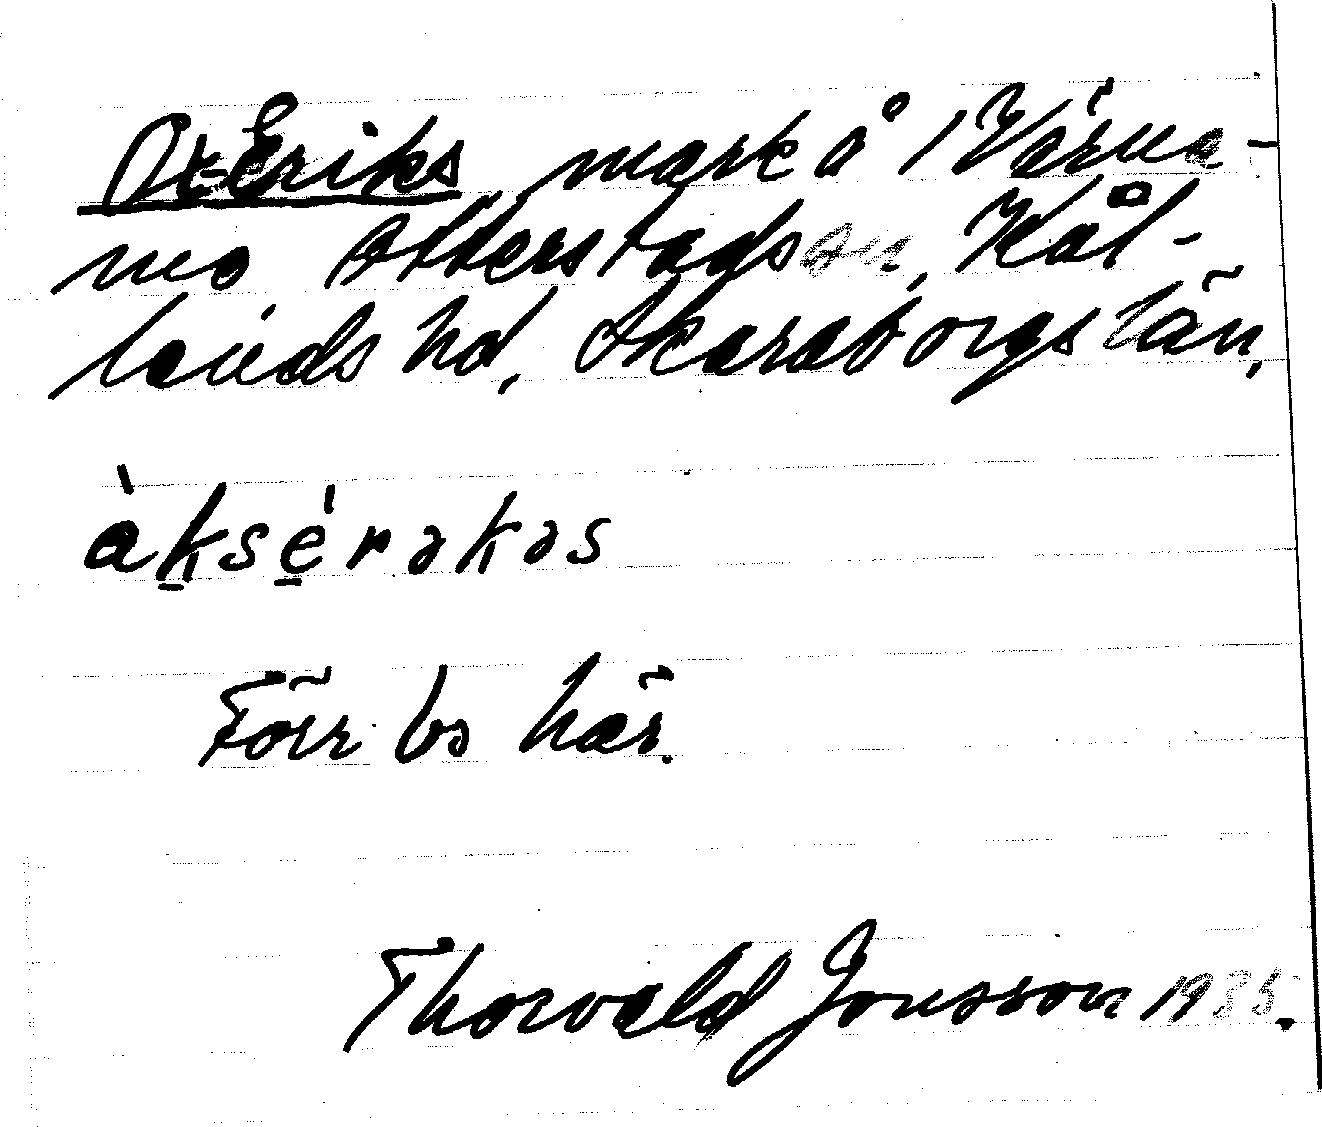 Ox-Eriks, mark å 1 Värna-
mo, Otterstads sn, Kål-
lands hd, Skaraborgs län.
àksérəkəs
Förr bs här.
Thorvald Jonsson 1935.